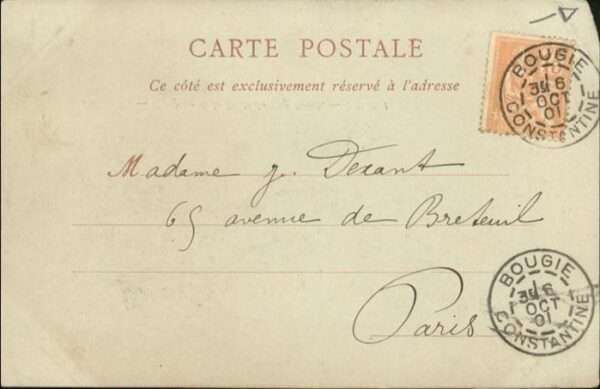 CARTE POSTALE
Ce côté est exclusivement réservé à l'adresse
BOUGIE
6
OCT
01
CONSTANTINE
Madame J. Dexant
65 avenue de Breteuil
Paris
BOUGIE
6
OCT
01
CONSTANTINE